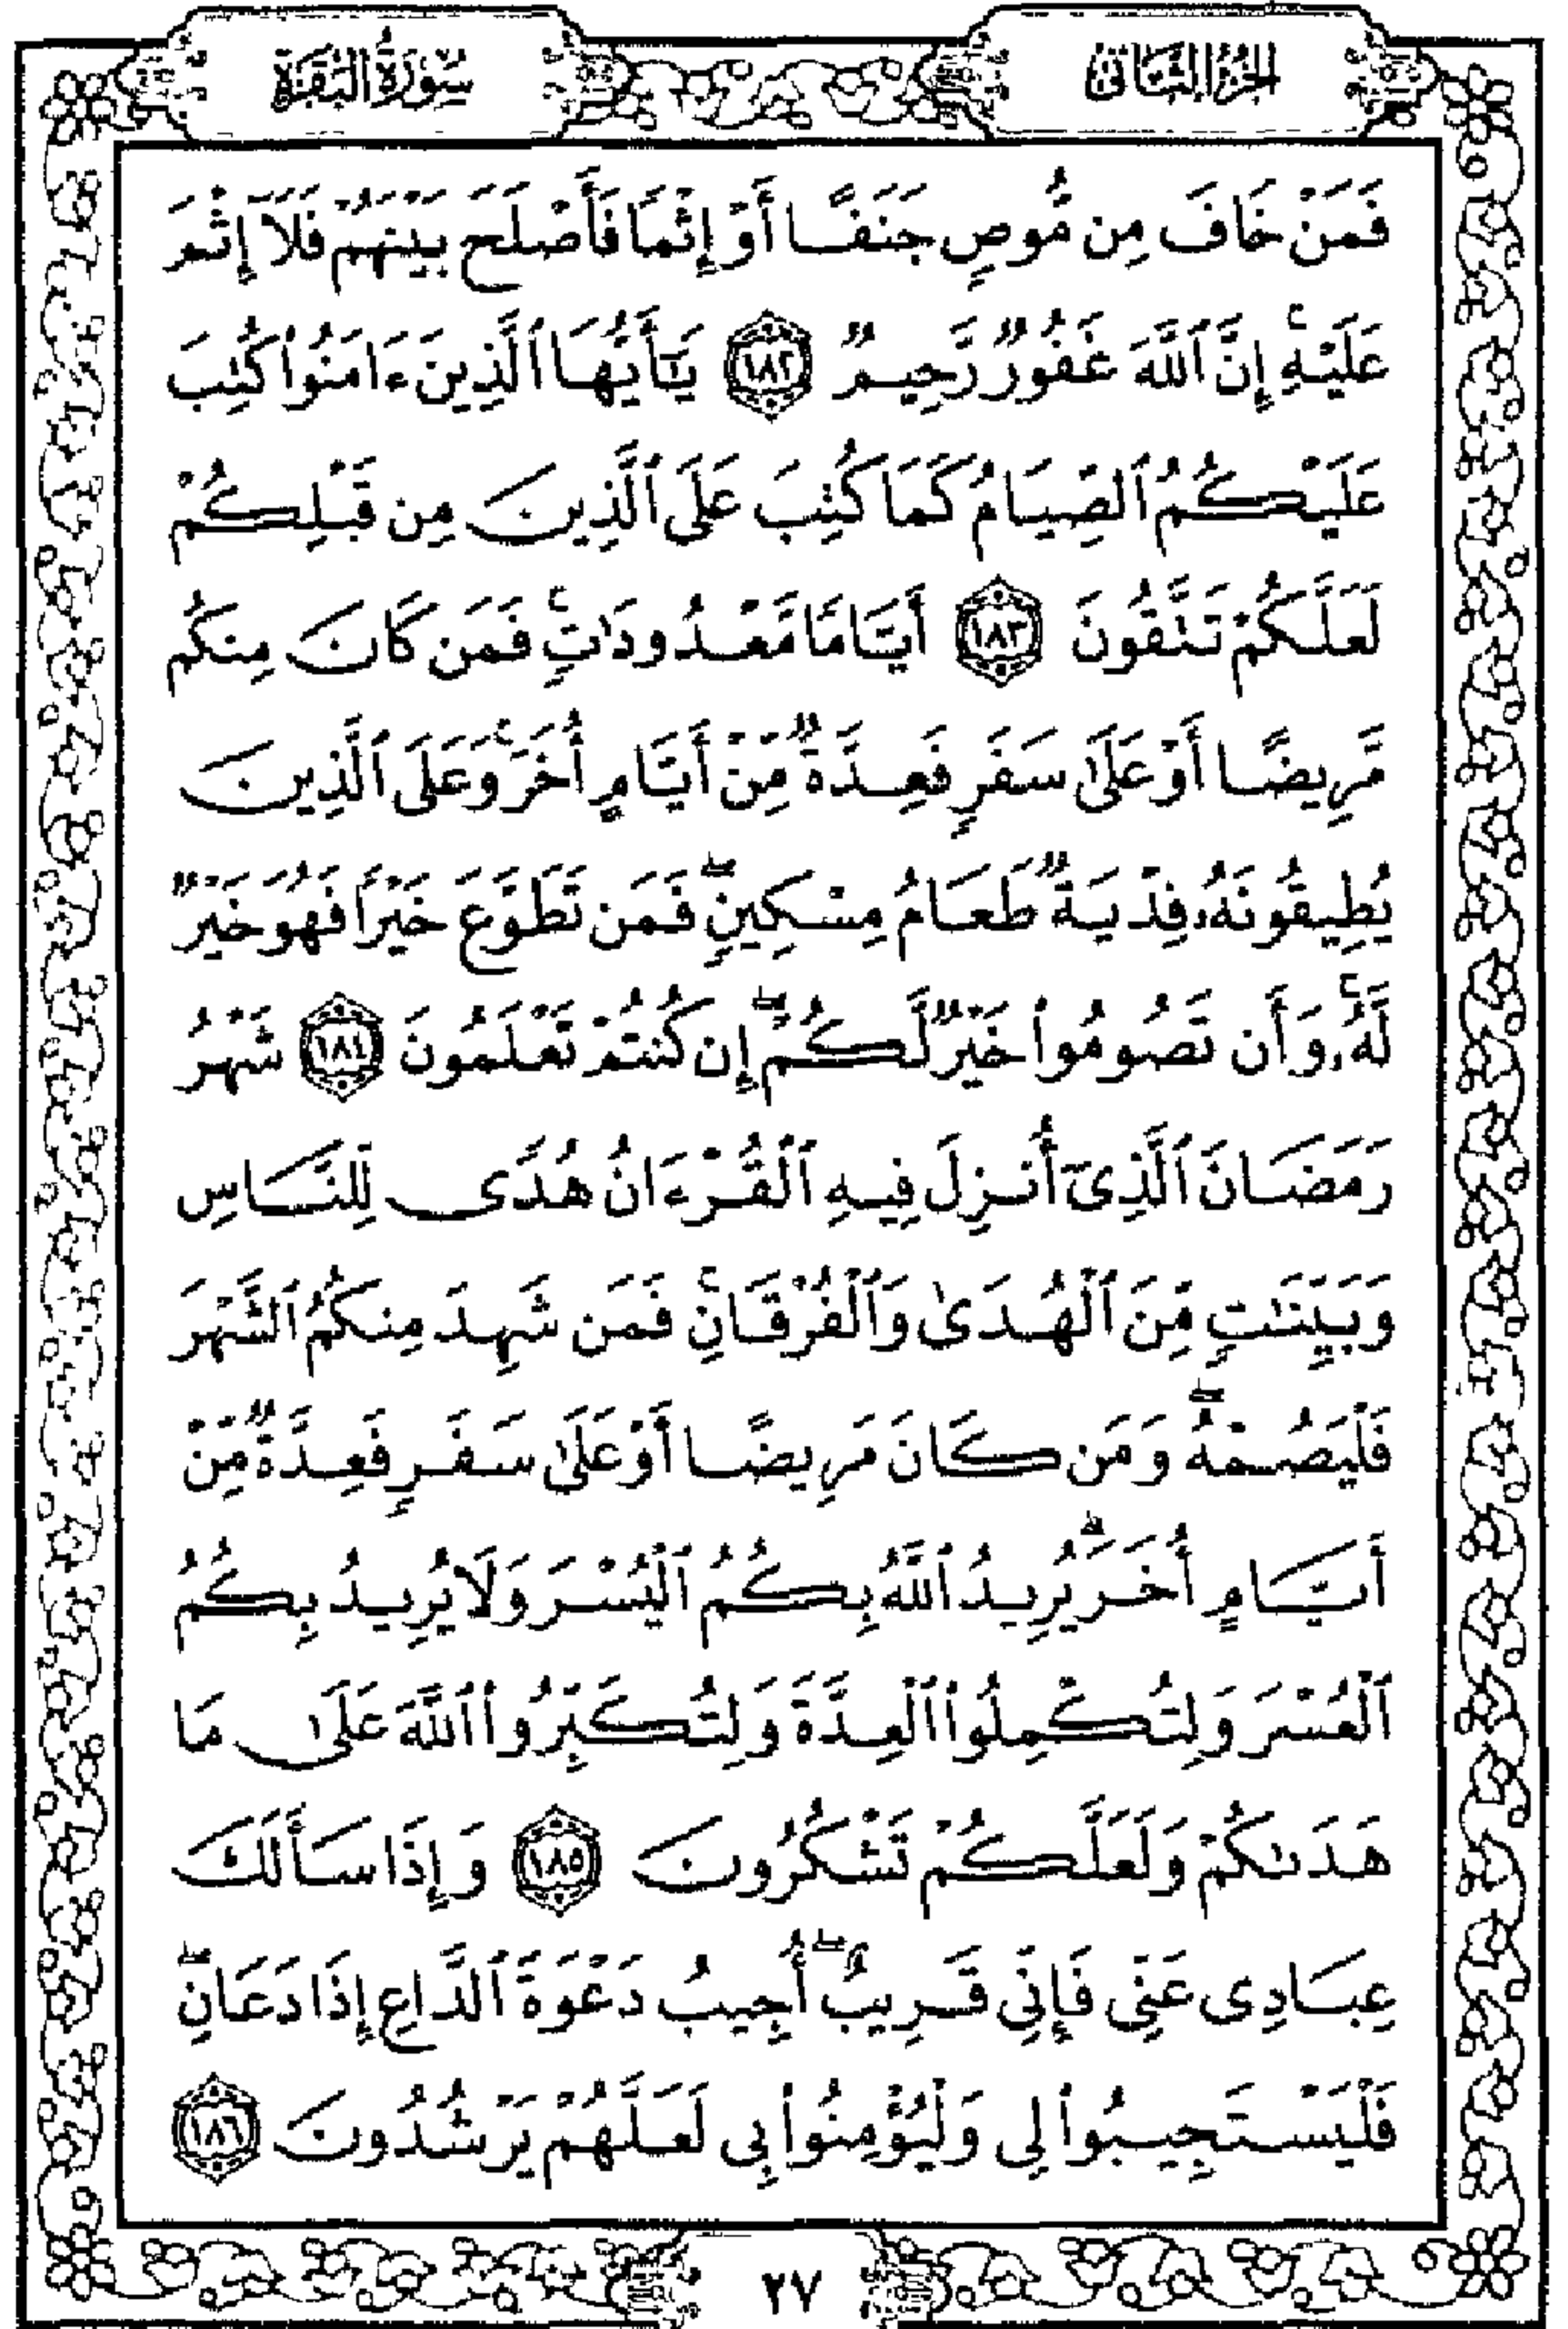 الجزء الثاني
سورة البقرة
فَمَنْ خَافَ مِن مُّوصٍ جَنَفًا أَوْ إِثْمًا فَأَصْلَحَ بَيْنَهُمْ فَلَآ إِثْمَ
عَلَيْهِ ۚ إِنَّ ٱللَّهَ غَفُورٌ رَّحِيمٌ ١٨٢ يَـٰٓأَيُّهَا ٱلَّذِينَ ءَامَنُوا۟ كُتِبَ
عَلَيْكُمُ ٱلصِّيَامُ كَمَا كُتِبَ عَلَى ٱلَّذِينَ مِن قَبْلِكُمْ
لَعَلَّكُمْ تَتَّقُونَ ١٨٣ أَيَّامًا مَّعْدُودَٰتٍ ۚ فَمَن كَانَ مِنكُم
مَّرِيضًا أَوْ عَلَىٰ سَفَرٍ فَعِدَّةٌ مِّنْ أَيَّامٍ أُخَرَ ۚ وَعَلَى ٱلَّذِينَ
يُطِيقُونَهُۥ فِدْيَةٌ طَعَامُ مِسْكِينٍ ۖ فَمَن تَطَوَّعَ خَيْرًا فَهُوَ خَيْرٌ
لَّهُۥ ۚ وَأَن تَصُومُوا۟ خَيْرٌ لَّكُمْ ۖ إِن كُنتُمْ تَعْلَمُونَ ١٨٤ شَهْرُ
رَمَضَانَ ٱلَّذِىٓ أُنزِلَ فِيهِ ٱلْقُرْءَانُ هُدًى لِّلنَّاسِ
وَبَيِّنَـٰتٍ مِّنَ ٱلْهُدَىٰ وَٱلْفُرْقَانِ ۚ فَمَن شَهِدَ مِنكُمُ ٱلشَّهْرَ
فَلْيَصُمْهُ ۖ وَمَن كَانَ مَرِيضًا أَوْ عَلَىٰ سَفَرٍ فَعِدَّةٌ مِّنْ
أَيَّامٍ أُخَرَ ۗ يُرِيدُ ٱللَّهُ بِكُمُ ٱلْيُسْرَ وَلَا يُرِيدُ بِكُمُ
ٱلْعُسْرَ وَلِتُكْمِلُوا۟ ٱلْعِدَّةَ وَلِتُكَبِّرُوا۟ ٱللَّهَ عَلَىٰ مَا
هَدَىٰكُمْ وَلَعَلَّكُمْ تَشْكُرُونَ ١٨٥ وَإِذَا سَأَلَكَ
عِبَادِى عَنِّى فَإِنِّى قَرِيبٌ ۖ أُجِيبُ دَعْوَةَ ٱلدَّاعِ إِذَا دَعَانِ ۖ
فَلْيَسْتَجِيبُوا۟ لِى وَلْيُؤْمِنُوا۟ بِى لَعَلَّهُمْ يَرْشُدُونَ ١٨٦
٢٧